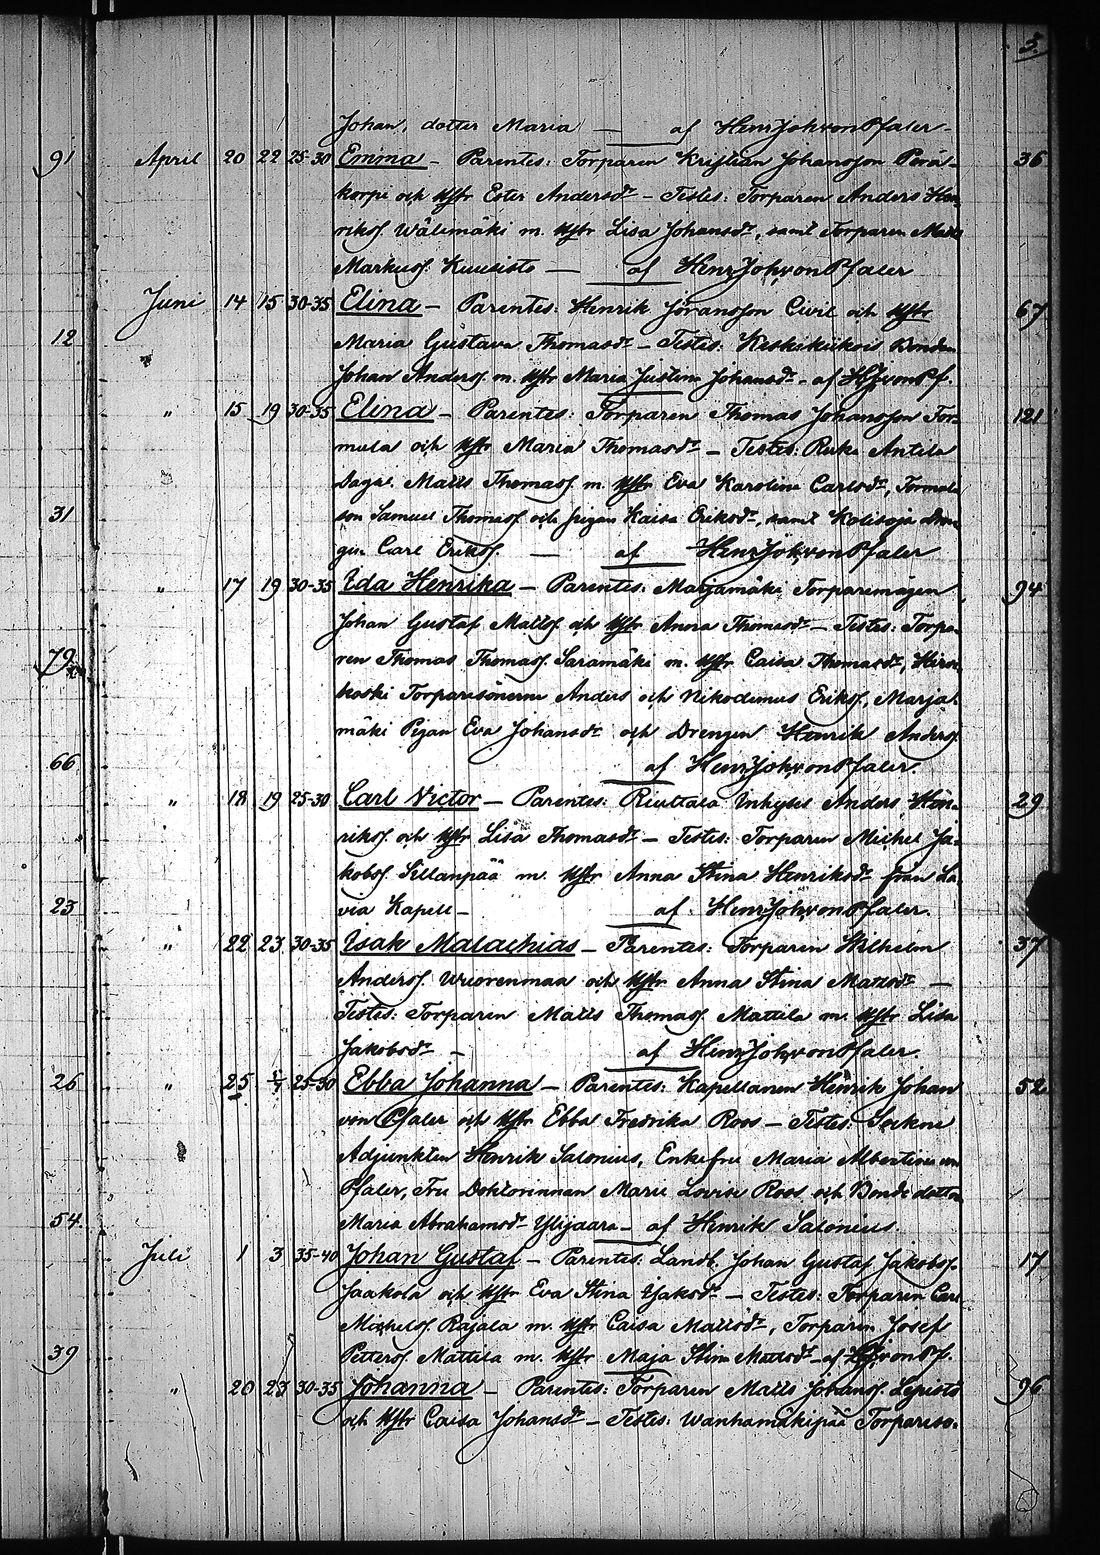 5.
Johan, dotter Maria — af Henr Joh von Pfaler
91 April 20 22 25-30 Emma — Parentes: Torparen Kristian Johansson Perä- 36
korpi och Hstr Ester Andersdr — Testes: Torparen Anders Hen-
rikss. Wälimäki m. Hstr Lisa Johansdr, samt Torparen Matts
Markuss. Kuusisto — af Henr Joh von Pfaler
Juni 14 15 30-35 Elina — Parentes: Henrik Jöransson Civil och Hstr 67
12 Maria Gustava Thomasdr — Testes: Keskikikois Bonden
Johan Anderss. m. Hstr Maria Justina Johansdr — af HJ von Pf.
" 15 19 30-35 Elina — Parentes: Torparen Thomas Johansson Tor- 121
mula och Hstr Maria Thomasdr — Testes: Ruka Antila
Matts Thomass. m. Hstr Eva Karolina Carlsdr,
31 son Samuel Thomass och pigan Kaisa Eriksdr, samt Kolisoja dren-
gen Carl Erikss. — af Henr Joh von Pfaler
" 17 19 30-35 Ida Henrika — Parentes: Marjamäki Torparemågen 94
Johan Gustaf Mattss och Hstr Anna Thomasdr — Testes: Torpa-
79 ren Thomas Thomass. Saramäki m. Hstr Caisa Thomasdr,
koski Torparesönerne Anders och Nikodemus Erikss., Marja-
mäki Pigan Eva Johansdr och Drengen Henrik Anderss.
66 af Henr Joh von Pfaler.
" 18 19 25-30 Carl Victor — Parentes: Riuttala Inhyses Anders Hen- 29
rikss. och Hstr Lisa Thomasdr — Testes: Torparen Michel Ja-
kobss. Sillanpää m. Hstr Anna Stina Henriksdr från La-
23 via Kapell — af Henr Joh von Pfaler.
" 22 23 30-35 Isak Malachias — Parentes: Torparen Wilhelm 37
Anderss. Wuorenmaa och Hstr Anna Stina Mattsdr —
Testes: Torparen Matts Thomass. Mattila m. Hstr Lisa
Jakobsdr — af Henr Joh von Pfaler.
26 " 25 5/7 25-30 Ebba Johanna — Parentes: Kapellanen Henrik Johan 52
von Pfaler och Hstr Ebba Fredrika Roos — Testes: Sockne
Adjunkten Henrik Salonius, Enkefru Maria Albertina von
Pfaler, Fru Doktorinnan Marie Lovise Roos och Bondedottern
54 Maria Abrahamsdr Ylijaara — af Henrik Salonius.
Juli 1 3 35-40 Johan Gustaf — Parentes: Landb. Johan Gustaf Jakobss. 17
Jaakola och Hstr Eva Stina Isaksdr — Testes: Torparen Carl
Michelss. Rajala m. Hstr Caisa Mattsdr, Torparen Josef
39 Petterss. Mattila m. Hstr Maja Stina Mattsdr — af HJ von Pf.
" 20 23 30-35 Johanna — Parentes: Torparen Matts Johanss. Lepistö 96
och Hstr Caisa Johansdr — Testes: Wanhamäkipää Torpareso-